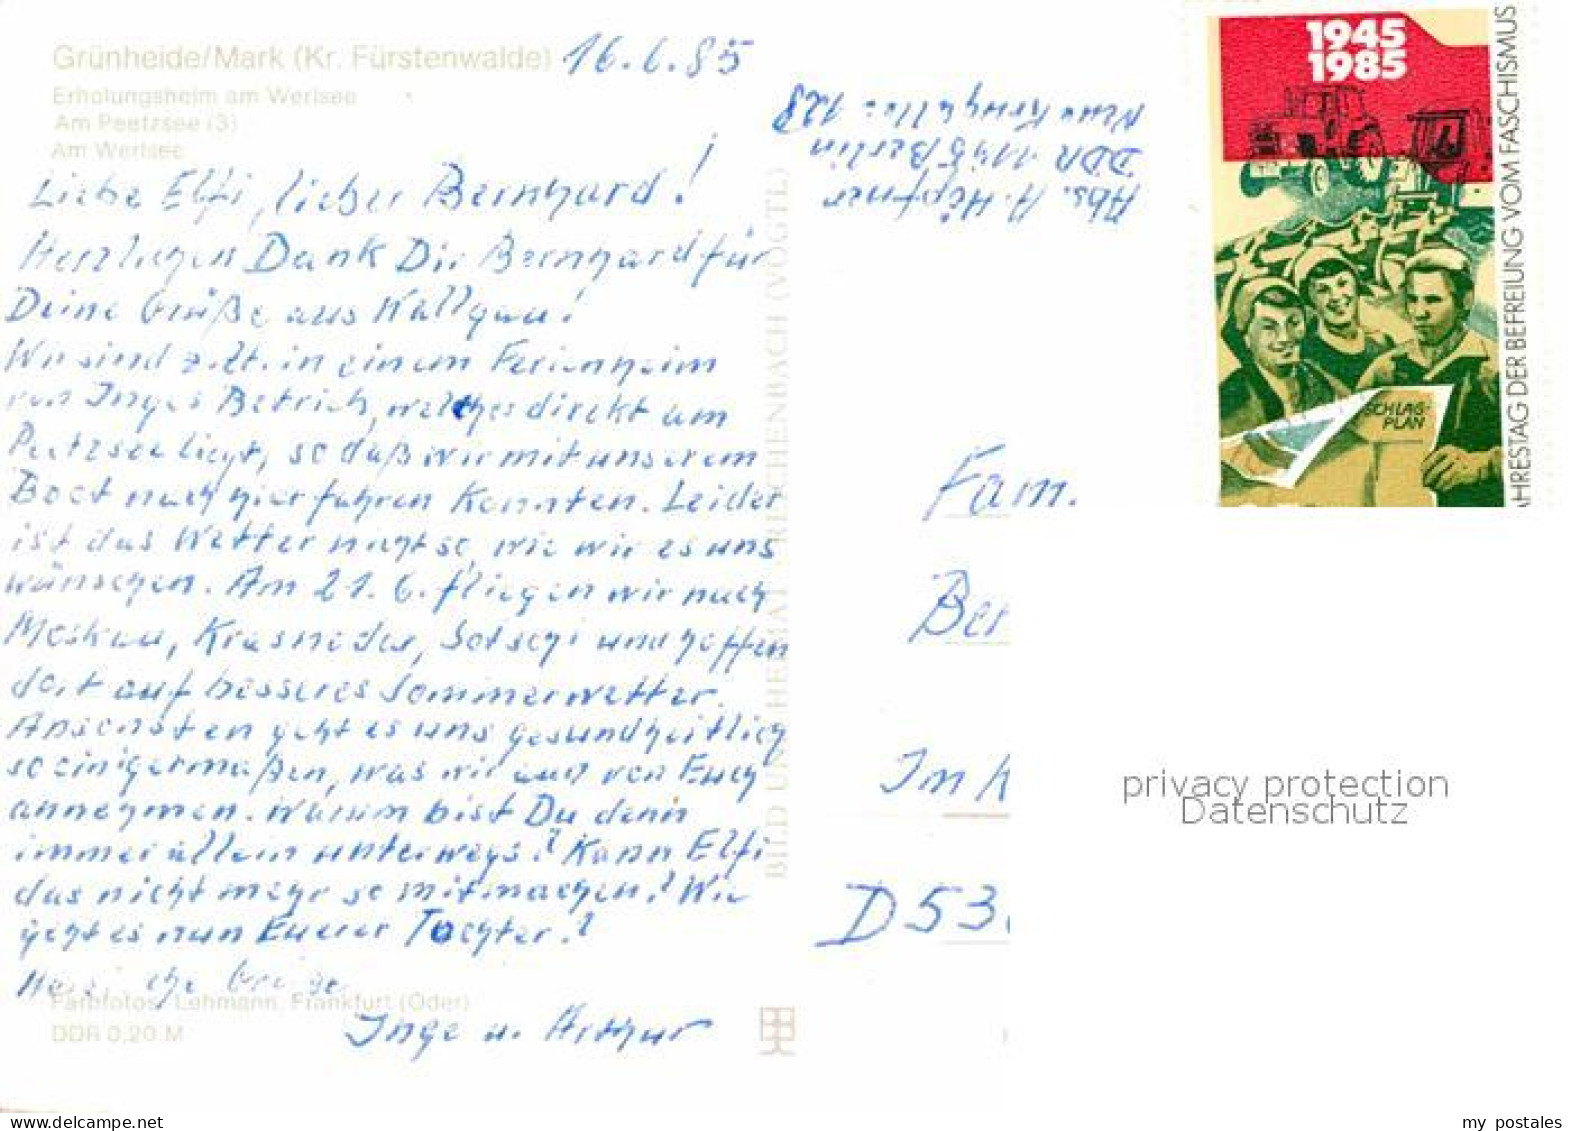 Grünheide/Mark (Kr. Fürstenwalde)
16.6.85
Erholungsheim am Werlsee
Am Peetzsee (3)
Am Werlsee
Liebe Elfi, lieber Bernhard!
Herzlichen Dank Dir Bernhard für
Deine Grüße aus Wallgau!
Wir sind z.Zt. in einem Ferienheim
von Inges Betrieb, welches direkt am
Peetzsee liegt, so daß wir mit unserem
Boot nach hier fahren konnten. Leider
ist das Wetter nicht so, wie wir es uns
wünschen. Am 21.6. fliegen wir nach
Moskau, Krasnodar, Sotschi und hoffen
dort auf besseres Sommerwetter.
Ansonsten geht es uns gesundheitlich
so einigermaßen, was wir auch von Euch
annehmen. Warum bist Du denn
immer allein unterwegs? Kann Elfi
das nicht mehr so mitmachen? Wie
geht es nun Euerer Tochter?
Herzliche Grüße
Inge u. Arthur
Farbfotos: Lehmann, Frankfurt (Oder)
DDR 0,20 M
BILD UND HEIMAT REICHENBACH (VOGTL)
Abs. A. Höpfner
DDR 1195 Berlin
Neue Krugallee 128
1945
1985
SCHLAG-
PLAN
AHRESTAG DER BEFREIUNG VOM FASCHISMUS
Fam.
Ber
Im K
D 53
privacy protection
Datenschutz
my postales